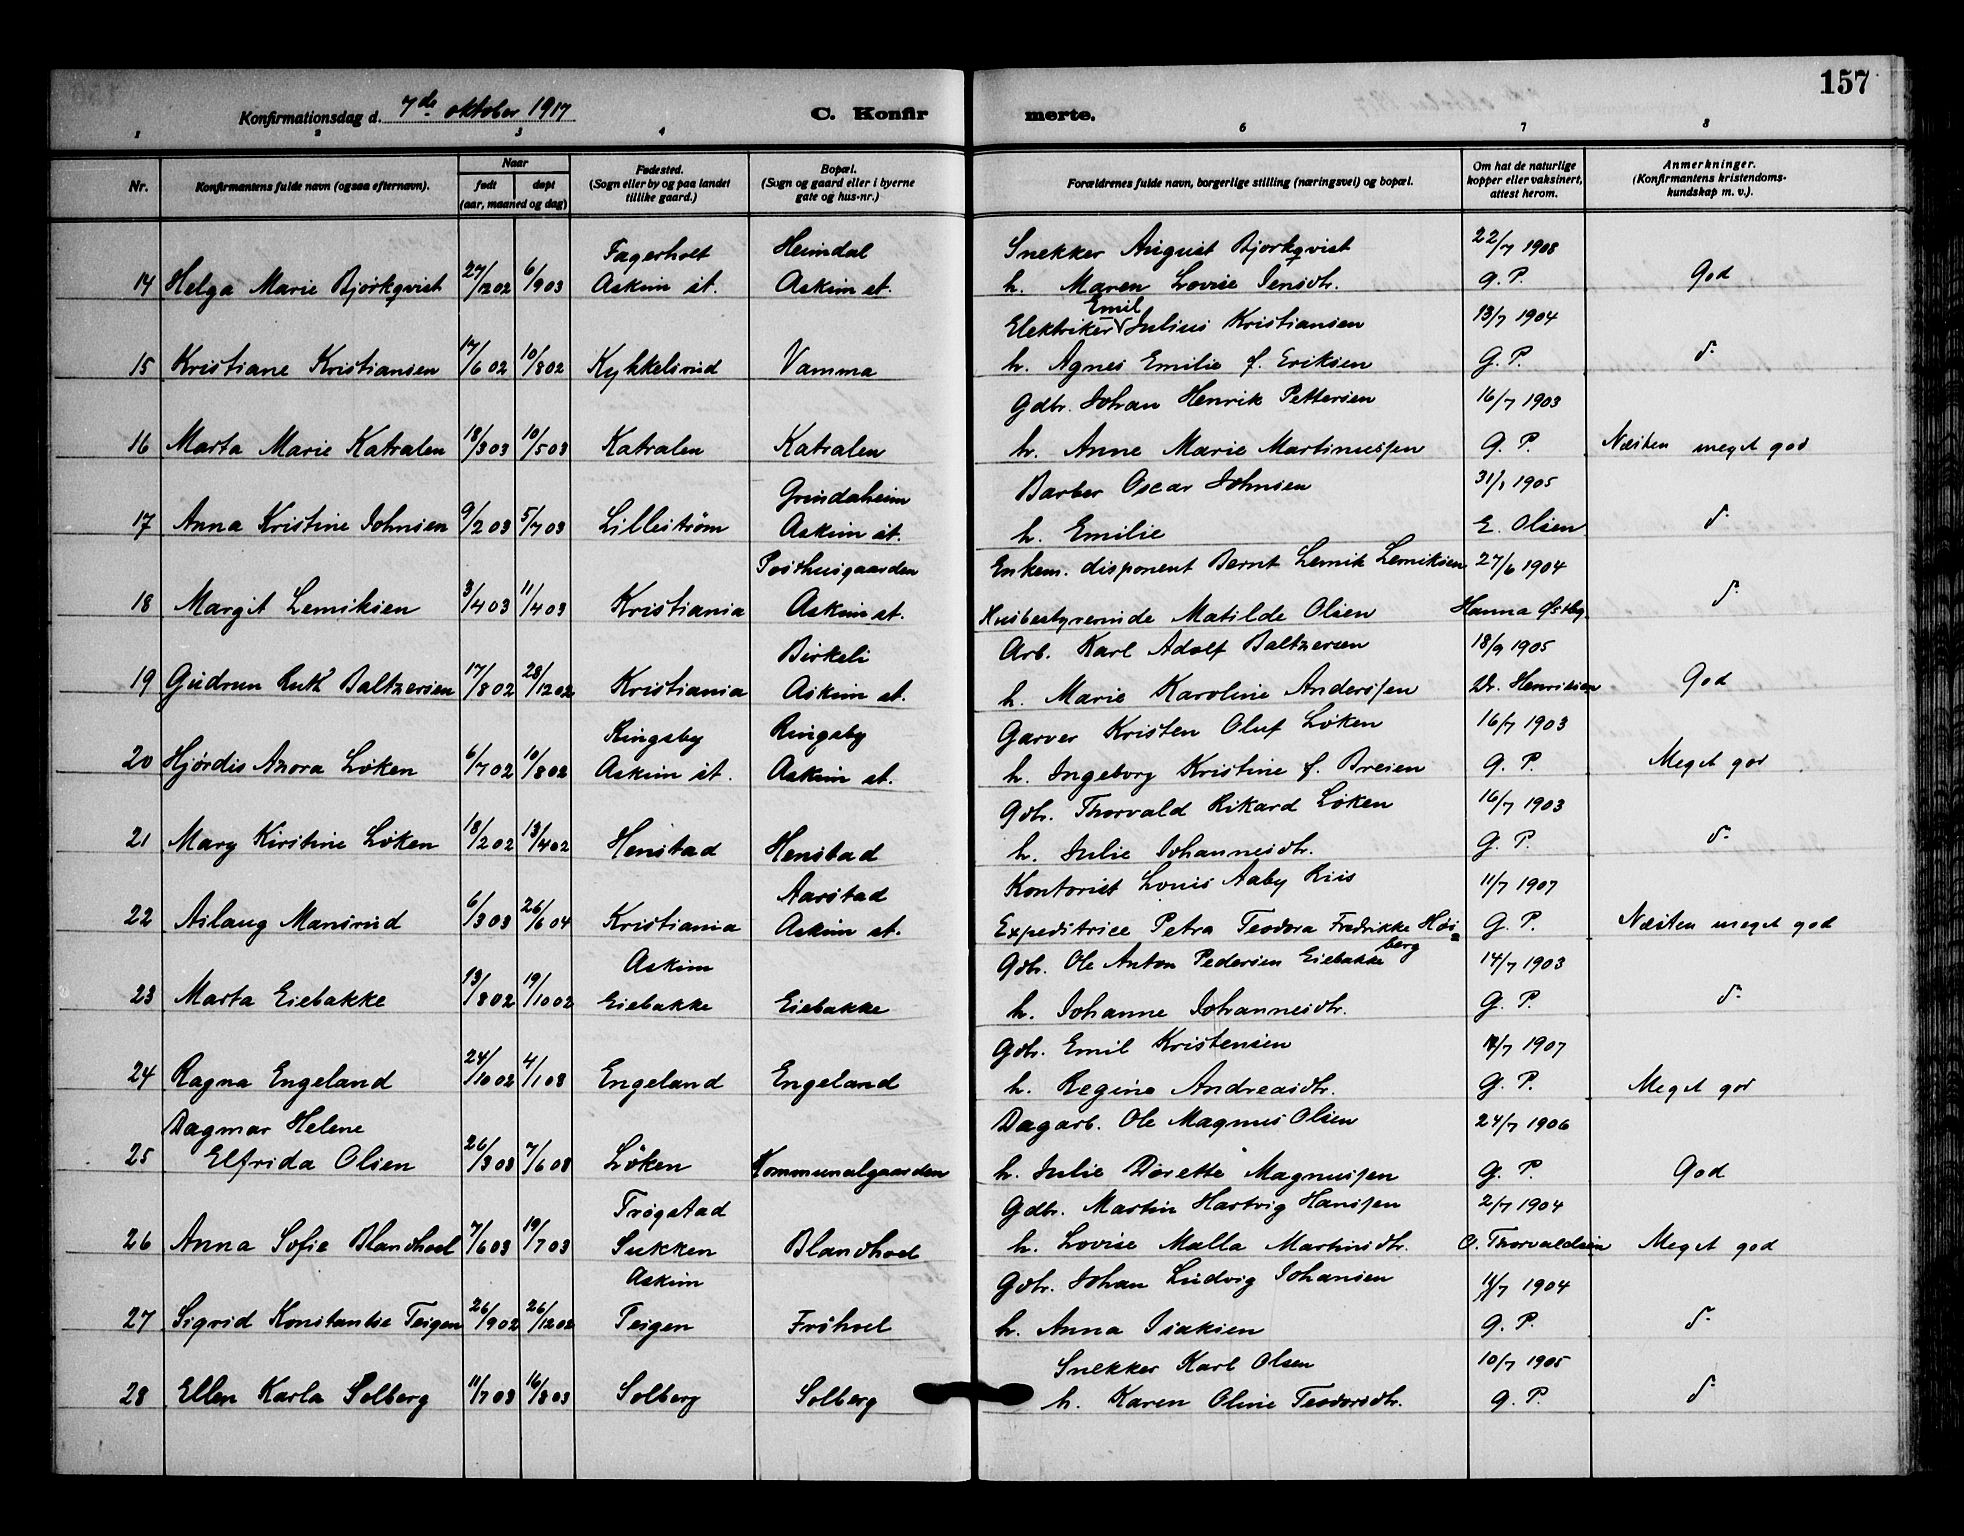 157
Konfirmationsdag d. 7de oktober 1917 C. Konfir merte.
1 2 3 4 6 7 8
Nr. Konfirmantens fulde navn (ogsaa efternavn). Naar født døpt (aar, maaned og dag) Fødested. (Sogn eller by og paa landet tillike gaard.) Bopæl. (Sogn og gaard eller i byerne gate og hus-nr.) Forældrenes fulde navn, borgerlige stilling (næringsvei) og bopæl. Om hat de naturlige kopper eller vaksinert, attest herom. Anmerkninger. (Konfirmantens kristendoms-kundskap m. v.).
Fagerholt Heimdal Snekker August Bjørkqvist 22/7 1908
14 Helga Marie Bjørkqvist 27/12 02 6/9 03 Askim st. Askim st. h. Maren Lovise Jensdtr. G. P. God
Elektriker Emil Julius Kristiansen 13/7 1904
15 Kristiane Kristiansen 17/6 02 10/8 02 Kykkelsrud Vamma h. Agnes Emilie f. Eriksen G. P. d:
Gdbr. Johan Henrik Pettersen 16/7 1903
16 Marta Marie Katralen 18/3 03 10/5 03 Katralen Katralen h. Anne Marie Martinussen G. P. Næsten meget god
Grindaheim Barber Oscar Johnsen 31/1 1905
17 Anna Kristine Johnsen 9/2 03 5/7 03 Lillestrøm Askim st. h. Emilie E. Olsen d:
Posthusgaarden Enkem. disponent Bernt Lemik Lemiksen 27/6 1904
18 Margit Lemiksen 3/4 03 11/4 03 Kristiania Askim st. Husbestyrerinde Matilde Olsen Hanna Østby d:
Birkeli Arb. Karl Adolf Baltzersen 18/9 1905
19 Gudrun Ruth Baltzersen 17/8 02 28/12 02 Kristiania Askim st. h. Marie Karoline Anderssen Dr. Henriksen God
Ringsby Ringsby Garver Kristen Oluf Løken 16/7 1903
20 Hjørdis Azora Løken 6/7 02 10/8 02 Askim st. Askim st. h. Ingeborg Kristine f. Breien G. P. Meget god
Gdbr. Thorvald Rikard Løken 16/7 1903
21 Mary Kirstine Løken 18/2 02 13/4 02 Henstad Henstad h. Julie Johannesdtr. G. P. d:
Aarstad Kontorist Louis Aaby Riis 11/7 1907
22 Aslaug Mansrud 6/3 03 26/6 04 Kristiania Askim st. Expeditrice Petra Teodora Fredrikke Høi=berg G. P. Næsten meget god
Askim Gdbr. Ole Anton Pedersen Eiebakke 14/7 1903
23 Marta Eiebakke 13/8 02 19/10 02 Eiebakke Eiebakke h. Johanne Johannesdtr. G. P. d:
Gdbr. Emil Kristensen /7 1907
24 Ragna Engeland 24/10 02 4/1 03 Engeland Engeland h. Regine Andreasdtr. G. P. Meget god
Dagmar Helene Dagarb. Ole Magnus Olsen 24/7 1906
25 Elfrida Olsen 26/3 03 7/6 03 Løken Kommunalgaarden h. Julie Dorette Magnussen G. P. God
Trøgstad Gdbr. Martin Hartvig Hanssen 2/7 1904
26 Anna Sofie Blandhoel 7/6 03 19/7 03 Sukken Blandhoel h. Lovise Malla Martinsdtr. O. Thorvaldsen Meget god
Askim Gdbr. Johan Ludvig Johansen 11/7 1904
27 Sigrid Konstantse Teigen 26/9 02 26/12 02 Teigen Frøhoel h. Anna Isaksen G. P. d:
Snekker Karl Olsen 10/7 1905
28 Ellen Karla Solberg 11/7 03 16/8 03 Solberg Solberg h. Karen Oline Teodorsdtr. G. P. d: